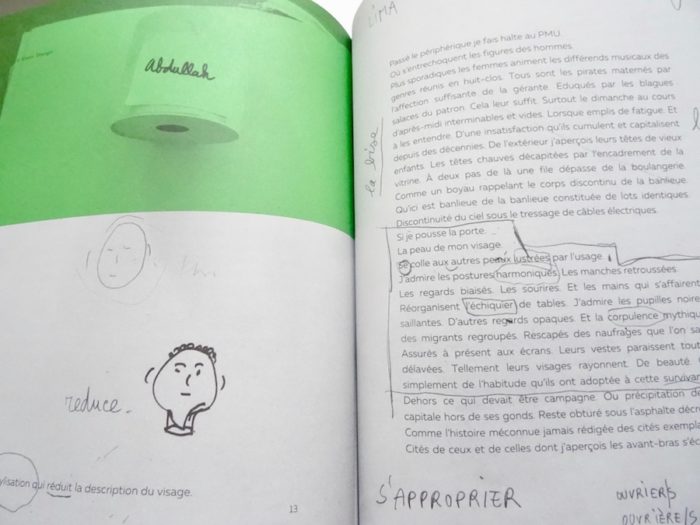 Abdullah
reduce.
ylisation qui réduit la description du visage.
13
LIMA
Passé le périphérique je fais halte au PMU.
Où s'entrechoquent les figures des hommes.
Plus sporadiques les femmes animent les différends musicaux des
genres réunis en huit-clos. Tous sont les pirates maternés par
l'affection suffisante de la gérante. Éduqués par les blagues
salaces du patron. Cela leur suffit. Surtout le dimanche au cours
d'après-midi interminables et vides. Lorsque emplis de fatigue. Et
à les entendre. D'une insatisfaction qu'ils cumulent et capitalisent
depuis des décennies. De l'extérieur j'aperçois leurs têtes de vieux
enfants. Les têtes chauves décapitées par l'encadrement de la
vitrine. À deux pas de là une file dépasse de la boulangerie.
Comme un boyau rappelant le corps discontinu de la banlieue.
Qu'ici est banlieue de la banlieue constituée de lots identiques.
Discontinuité du ciel sous le tressage de câbles électriques.
la bise
Si je pousse la porte.
La peau de mon visage
se colle aux autres peaux lustrées par l'usage
J'admire les postures harmoniques. Les manches retroussées.
Les regards biaisés. Les sourires. Et les mains qui s'affairent
Réorganisent l'échiquier de tables. J'admire les pupilles noire
saillantes. D'autres regards opaques. Et la corpulence mythiqu
des migrants regroupés. Rescapés des naufrages que l'on sa
Assurés à présent aux écrans. Leurs vestes paraissent tout
délavées. Tellement leurs visages rayonnent. De beauté.
simplement de l'habitude qu'ils ont adoptée à cette survivan
Dehors ce qui devait être campagne. Ou précipitation de
capitale hors de ses gonds. Reste obturé sous l'asphalte décr
Comme l'histoire méconnue jamais rédigée des cités exempla
Cités de ceux et de celles dont j'aperçois les avant-bras s'éc
S'APPROPRIER
OUVRIER/S
OUVRIÈRE/S